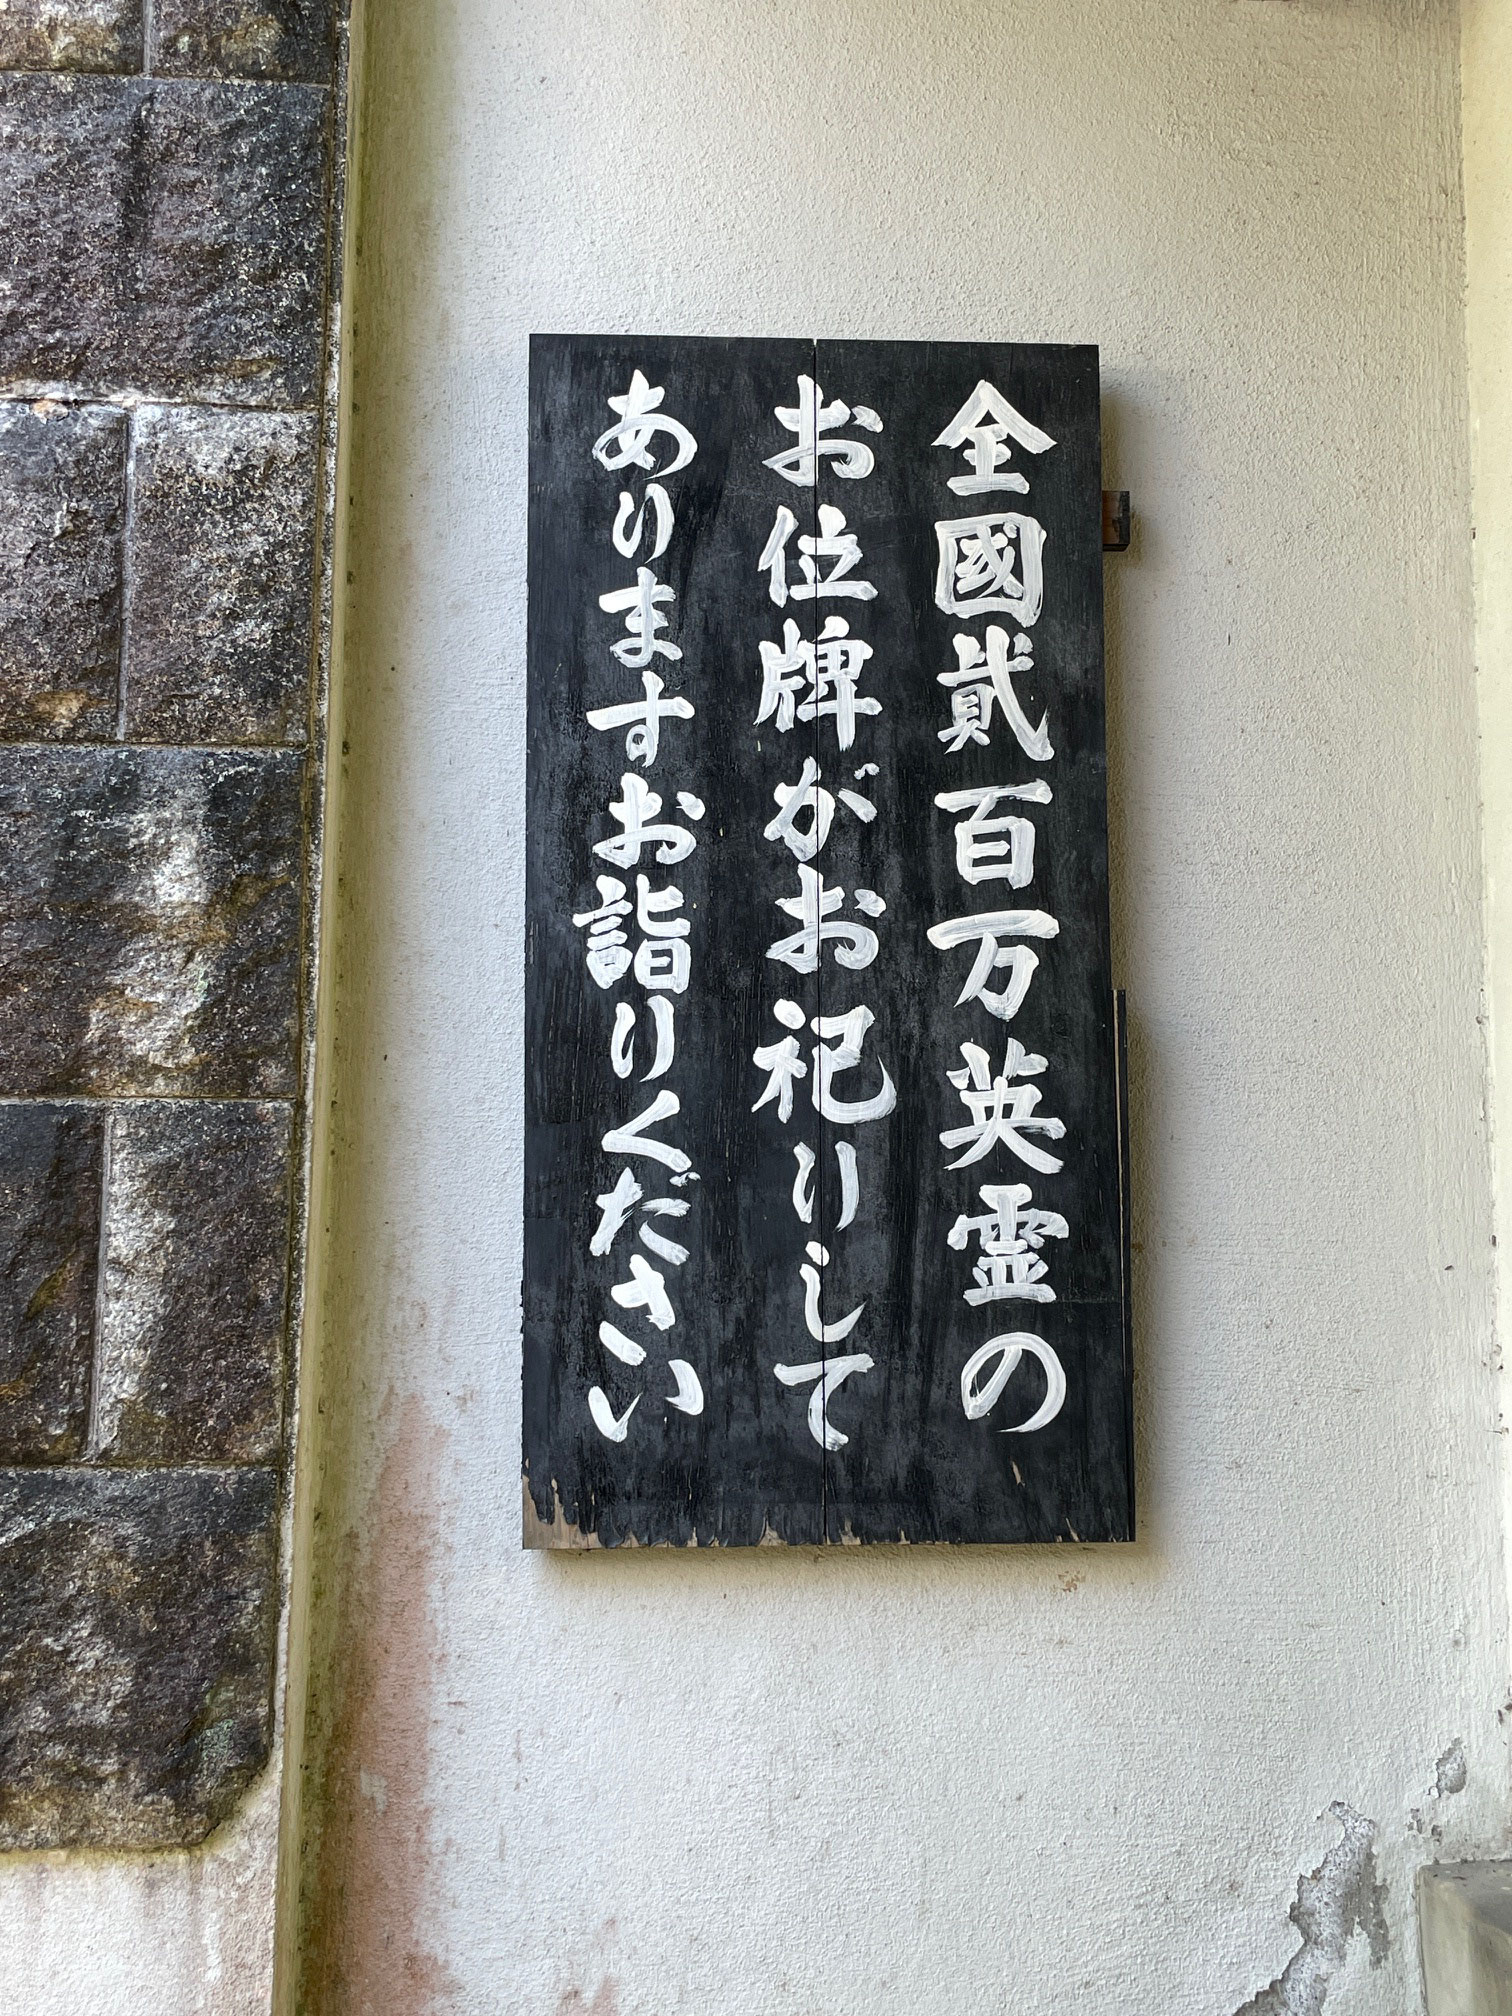 全國貮百万英霊の
お位牌がお祀りして
ありますお詣りください